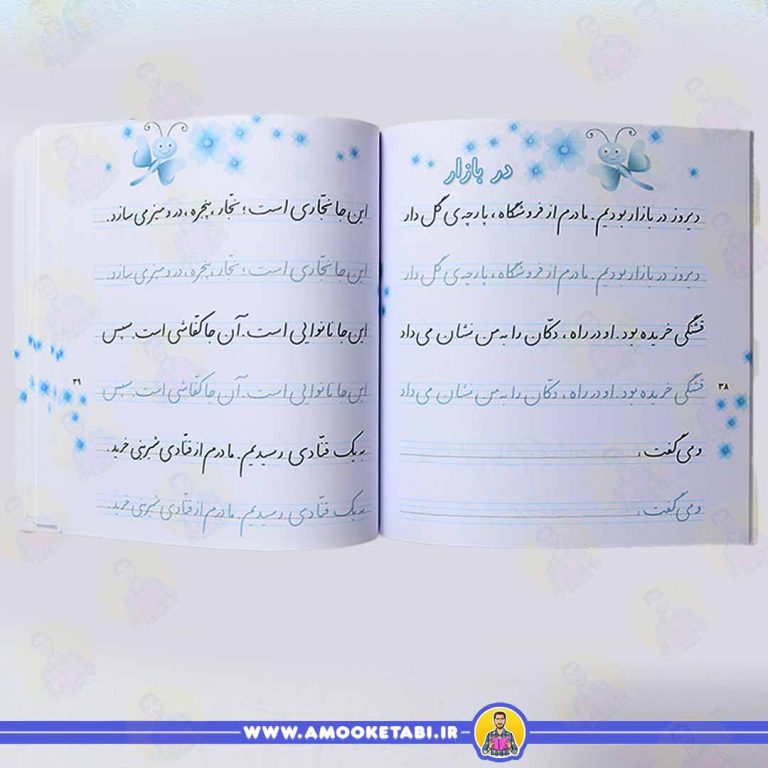 در بازار
دیروز در بازار بودیم. مادرم از فروشگاه، پارچه‌ی گل دار
دیروز در بازار بودیم. مادرم از فروشگاه، پارچه‌ی گل دار
قشنگی خریده بود. او در راه، دکّان را به من نشان می داد
قشنگی خریده بود. او در راه، دکّان را به من نشان می داد
۳۸
و می گفت:
و می گفت:
این جا نجّاری است؛ نجّار، پنجره، در و میز می سازد.
این جا نجّاری است؛ نجّار، پنجره، در و میز می سازد.
این جا نانوایی است. آن جا کفّاشی است. سپس
این جا نانوایی است. آن جا کفّاشی است. سپس
۳۹
به یک قنّادی رسیدیم. مادرم از قنّادی شیرینی خرید.
به یک قنّادی رسیدیم. مادرم از قنّادی شیرینی خرید.
WWW.AMOOKETABI.IR